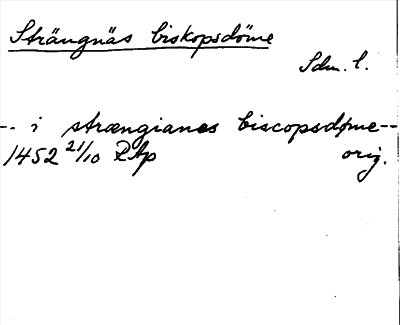 Strängnäs biskopsdöme
Sdm. l.
-- i strængianes biscopsdøme--
1452 21/10 RAp orig.